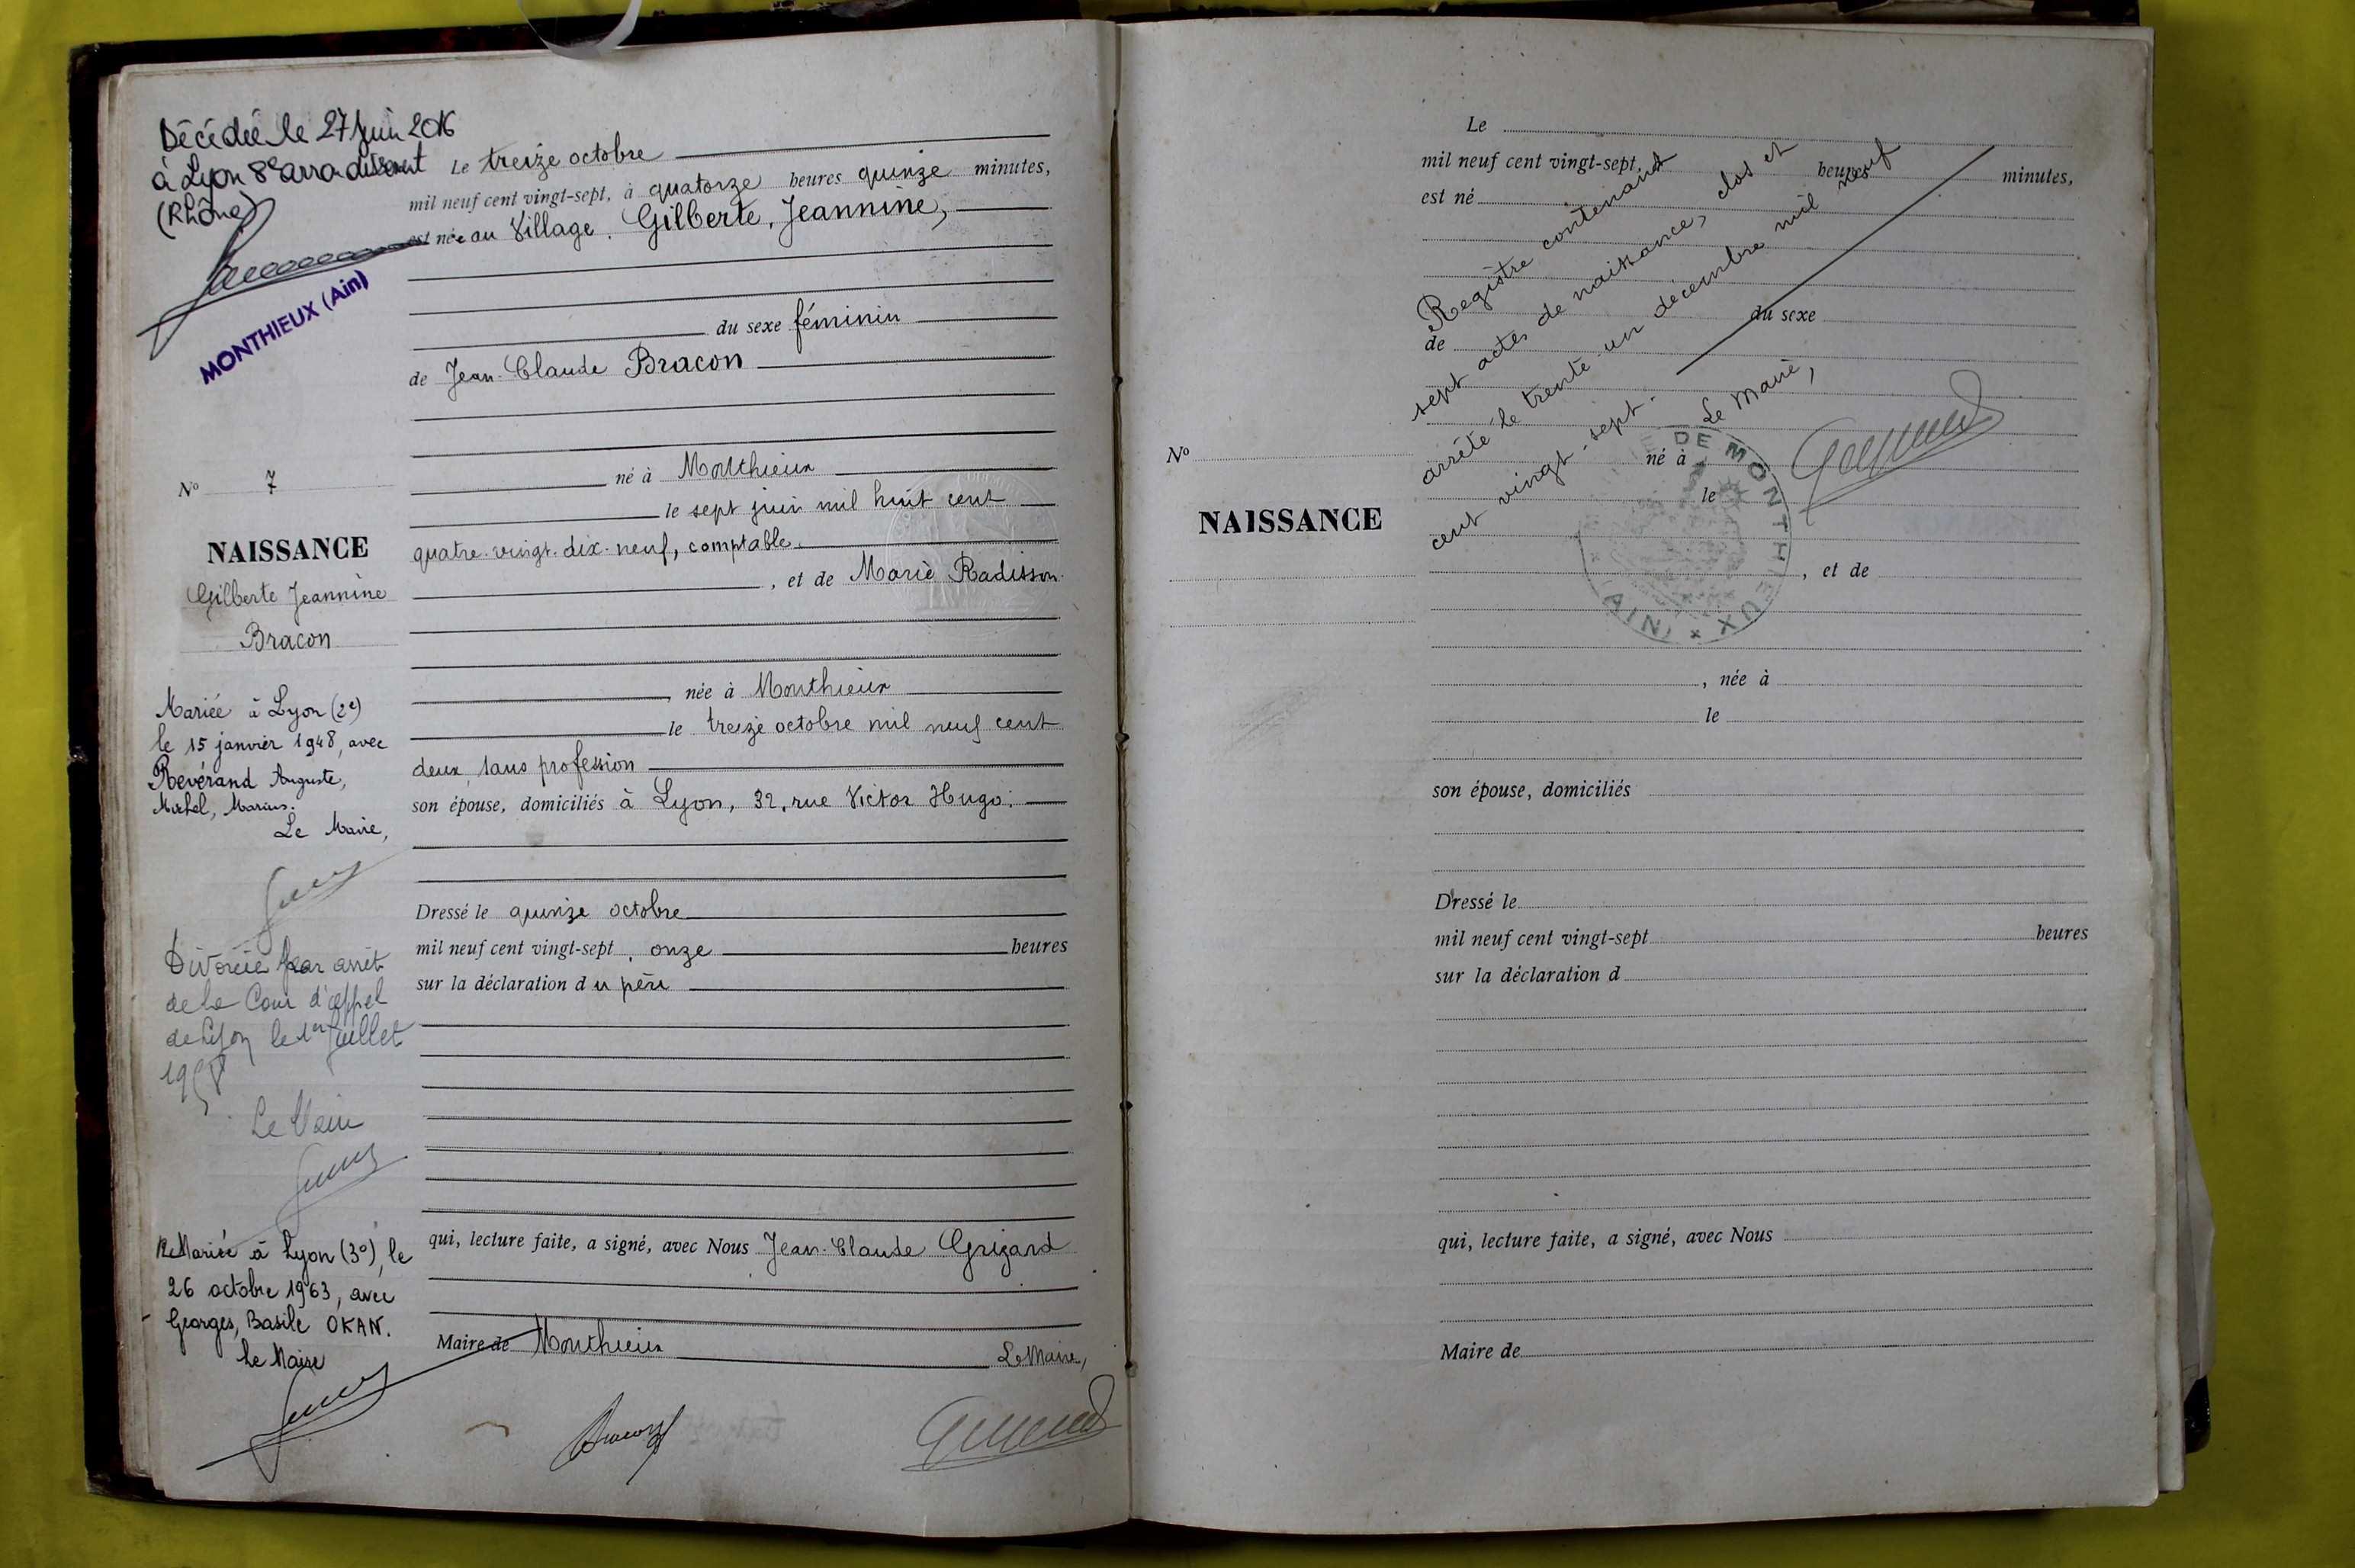 Décédée le 27 Juin 2016
à Lyon 8e arrondissement
(Rhône)
MONTHIEUX (Ain)
No 7
NAISSANCE
Gilberte Jeannine
Bracon
Mariée à Lyon (2e)
le 15 janvier 1948, avec
Revérand Auguste,
Michel, Marius.
Le Maire,
Divorcée par arrêt
de la Cour d'appel
de Lyon le 1er Juillet
1958
Le Maire
ReMariée à Lyon (3°), le
26 octobre 1963, avec
Georges, Basile OKAN.
le Maire
Le treize octobre
mil neuf cent vingt-sept, à quatorze heures quinze minutes,
est née au Village, Gilberte, Jeannine,
du sexe féminin
de Jean-Claude Bracon
né à Monthieux
le sept juin mil huit cent
quatre-vingt-dix-neuf, comptable
, et de Marie Radisson
, née à Monthieux
le treize octobre mil neuf cent
deux, sans profession
son épouse, domiciliés à Lyon, 32, rue Victor Hugo.
Dressé le quinze octobre
mil neuf cent vingt-sept, onze heures
sur la déclaration du père
qui, lecture faite, a signé, avec Nous Jean-Claude Grizard
Maire de Monthieux Le Maire,
Bracon
No
NAISSANCE
Le
mil neuf cent vingt-sept, heures minutes,
est né
du sexe
de
né à
le
, et de
, née à
le
son épouse, domiciliés
Dressé le
mil neuf cent vingt-sept heures
sur la déclaration d
qui, lecture faite, a signé, avec Nous
Maire de
Registre contenant
sept actes de naissance, clos et
arrêté le trente un décembre mil neuf
cent vingt-sept.
Le Maire,
DE MONTHIEUX * (AIN)